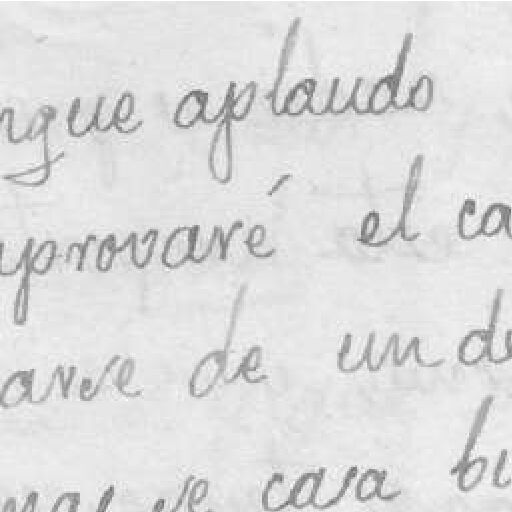 ngue aplaudo
aprovaré el ca
arse de un de
mas se casa bu